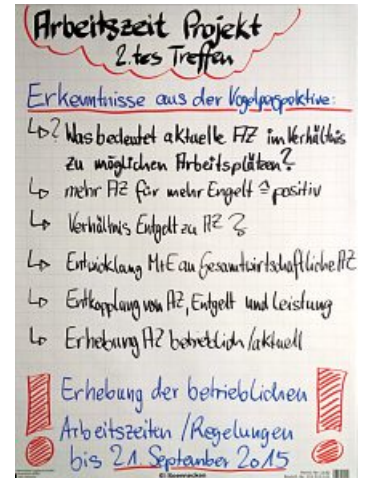 Arbeitszeit Projekt
2.tes Treffen
Erkenntnisse aus der Vogelperspektive:
↳? Was bedeutet aktuelle AZ im Verhältnis
zu möglichen Arbeitsplätzen?
↳ mehr AZ für mehr Engelt ≙ positiv
↳ Verhältnis Entgelt zu AZ ?
↳ Entwicklung M+E an Gesamtwirtschaftliche AZ
↳ Entkopplung von AZ, Entgelt und Leistung
↳ Erhebung AZ betrieblich/aktuell
! Erhebung der betrieblichen !
Arbeitszeiten / Regelungen
bis 21. September 2015